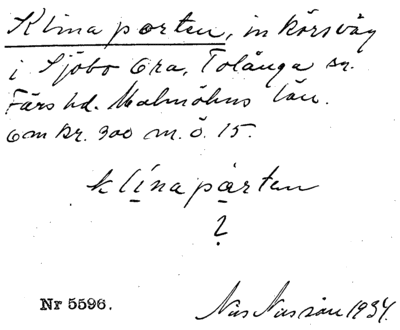 Klinaporten, inkörsväg
i Sjöbo Ora, Tolånga sn.
Färs hd. Malmöhus län.
6m br. 300 m. ö. 15.
klinaporten
?
Nr 5596.
Nils Nilsson 1934.